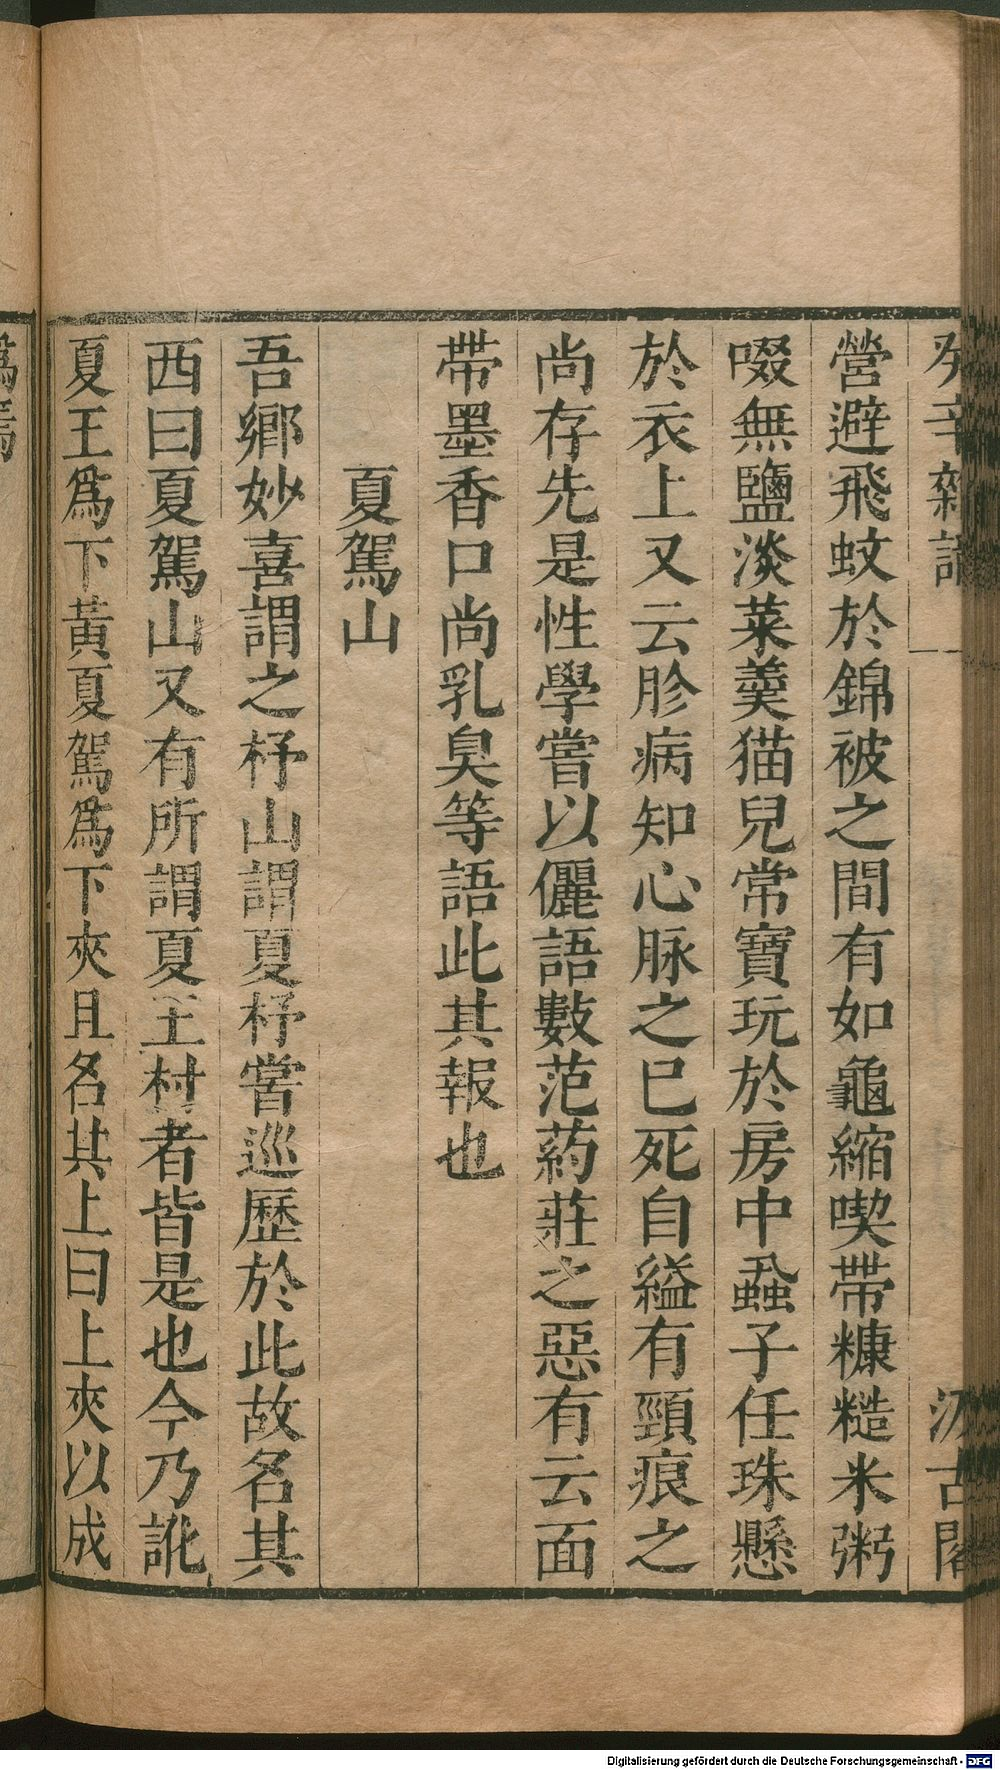 癸辛雜識
汲古閣
營避飛蚊於錦被之間有如龜縮喫帶糠糙米粥
啜無鹽淡菜羹猫兒常寶玩於房中蝨子任珠懸
於衣上又云胗病知心脉之已死自縊有頸痕之
尚存先是性學嘗以儷語數范葯莊之惡有云面
帶墨香口尚乳臭等語此其報也
夏駕山
吾鄉妙喜謂之杼山謂夏杼嘗巡歷於此故名其
西曰夏駕山又有所謂夏王村者皆是也今乃訛
夏王爲下黃夏駕爲下夾且名其上曰上夾以成
Digitalisierung gefördert durch die Deutsche Forschungsgemeinschaft - DFG